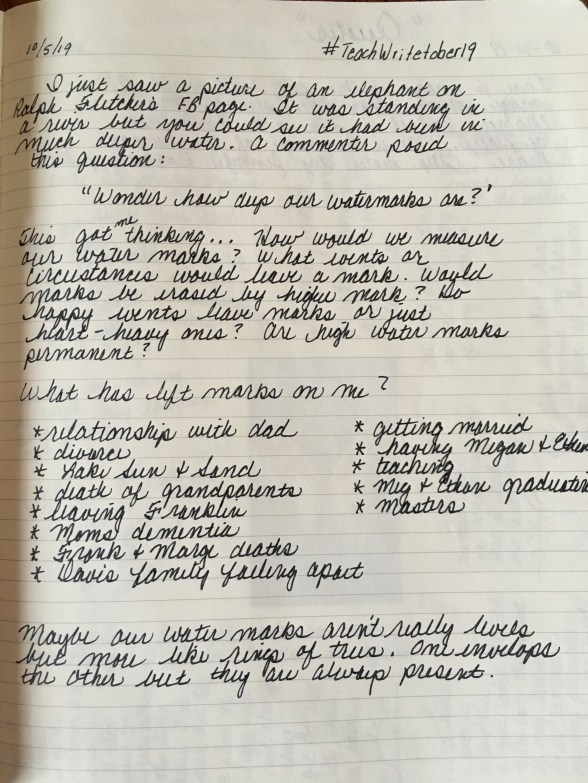 10/5/19 #TeachWritetober19
I just saw a picture of an elephant on
Ralph Fletcher's FB page. It was standing in
a river but you could see it had been in
much deeper water. A commenter posed
this question:
"Wonder how deep our watermarks are?"
This got me thinking... How would we measure
our water marks? What events or
circustances would leave a mark. Would
marks be erased by higher mark? Do
happy events leave marks or just
heart-heavy ones? Are high water marks
permanent?
What has left marks on me?
* relationship with dad * getting married
* divorce * having Megan & Ethan
* Lake Sun & Sand * teaching
* death of grandparents * Meg & Ethan graduation
* leaving Franklin * Masters
* Moms dementia
* Frank & Marge deaths
* Davis family falling apart
Maybe our water marks aren't really levels
but more like rings of trees. One envelops
the other but they are always present.